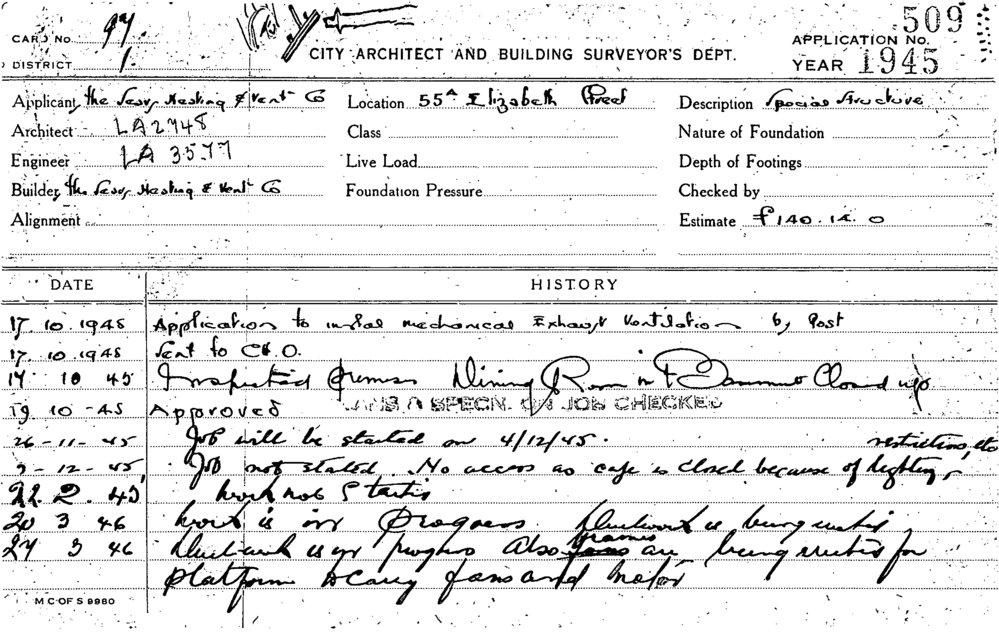 CARD No. 97.
DISTRICT 1.
CITY ARCHITECT AND BUILDING SURVEYOR'S DEPT.
509
APPLICATION No.
YEAR 1945
Applicant the Heating & Vent Co Location 55A Elizabeth Street Description Special Structure
Architect LA2748 Class Nature of Foundation
Engineer LA 3577 Live Load Depth of Footings
Builder the Heating & Vent Co Foundation Pressure Checked by
Alignment Estimate £140.14.0
DATE HISTORY
17.10.1945 Application to instal mechanical Exhaust Ventilation by Post
17.10.1945 Sent to
17 10 45 Inspected Dining Room in Closed up
19.10-45 Approved SPECN. ON JOB CHECKED
26-11-45 Job will be started on 4/12/45.
restrictions, etc
-12-45 Job not stated. No access as cafe is closed because of lighting
22.2.45 Work not
20 3 46 Work is in progress. Ductwork is being erected
27 3 46 Ductwork is in progress Also frames are being erected for
platform to carry fans and motor
M C OF S 9980